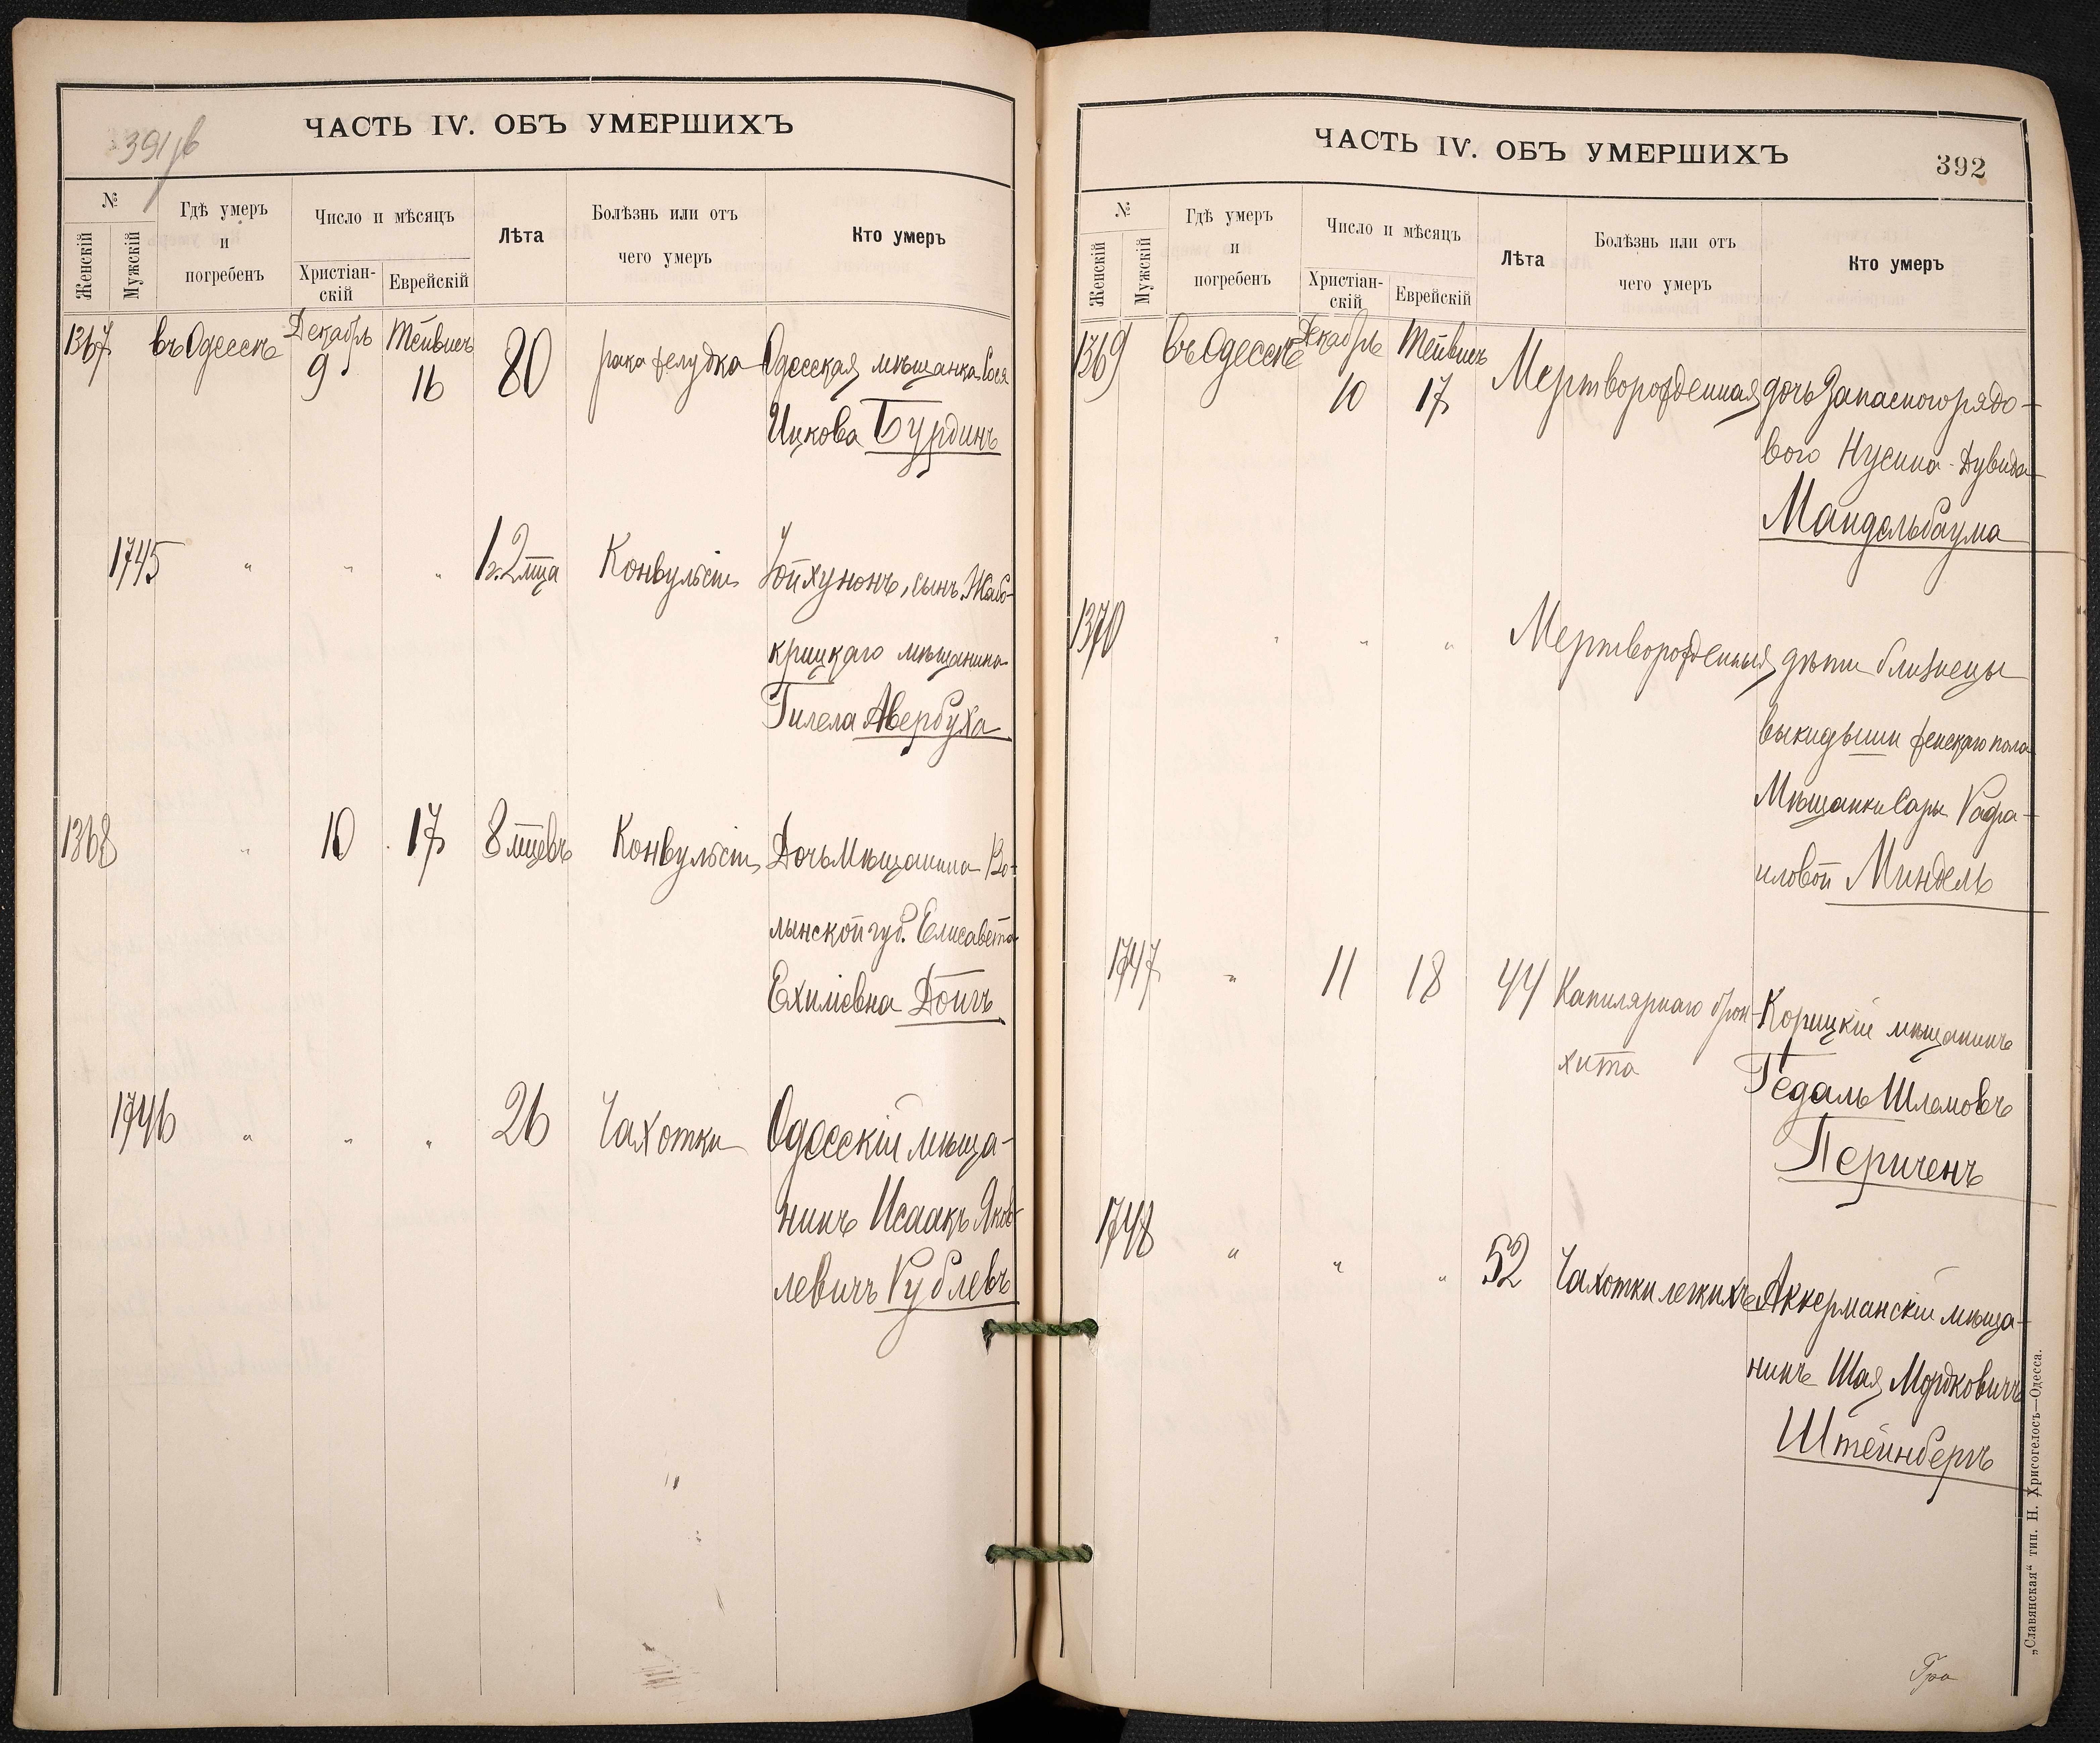 391 об
ЧАСТЬ IV. ОБЪ УМЕРШИХЪ
№
Женскій
Мужскій
Гдѣ умеръ
и
погребенъ
Число и мѣсяцъ
Христіан-
скій
Еврейскій
Лѣта
Болѣзнь или отъ
чего умеръ
Кто умеръ
1367 въ Одессѣ Декабрь 9 Тейвисъ 16 80 рака желудка Одесская мѣщанка Сося
Ицкова Бурдинъ
1745 " " " 1 г. 2 мца Конвульсіи Іойхунонъ, сынъ Жабо-
крицкаго мѣщанина
Гилела Авербуха
1368 " 10 17 8 мцевъ Конвульсіи Дочь Мѣщанина Во-
лынской губ. Елисавета
Ехиліевна Дойчъ
1746 " " " 26 Чахотки Одесскій мѣща-
нинъ Исаакъ Яков-
левичъ Рублевъ
ЧАСТЬ IV. ОБЪ УМЕРШИХЪ
392
№
Женскій
Мужскій
Гдѣ умеръ
и
погребенъ
Число и мѣсяцъ
Христіан-
скій
Еврейскій
Лѣта
Болѣзнь или отъ
чего умеръ
Кто умеръ
1369 въ Одессѣ Декабрь 10 Тейвисъ 17 Мертворожденная дочь Запаснаго рядо-
вого Нусина-Дувида
Мандельбаума
1370 " " " Мертворожденныя дѣти близнецы
выкидыши женскаго пола
Мѣщанки Сары Рафа-
иловой Миндель
1747 " 11 18 44 Капилярнаго брон- Корицкій мѣщанинъ
хита Гедаль Шлемовъ
Периченъ
1748 " " " 52 Чахотки легкихъ Аккерманскій мѣща-
нинъ Шая Мордковичъ
Штейнбергъ
„Славянская“ тип. Н. Хрисогелосъ—Одесса.